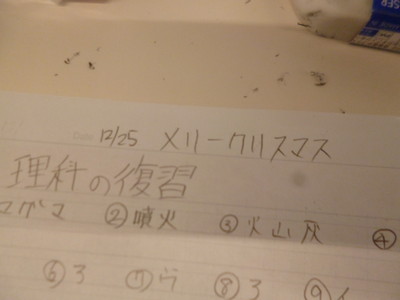 Date 12/25 メリークリスマス
理科の復習
マグマ ②噴火 ③火山灰 ④
⑥3 ⑦ウ ⑧3 ⑨イ